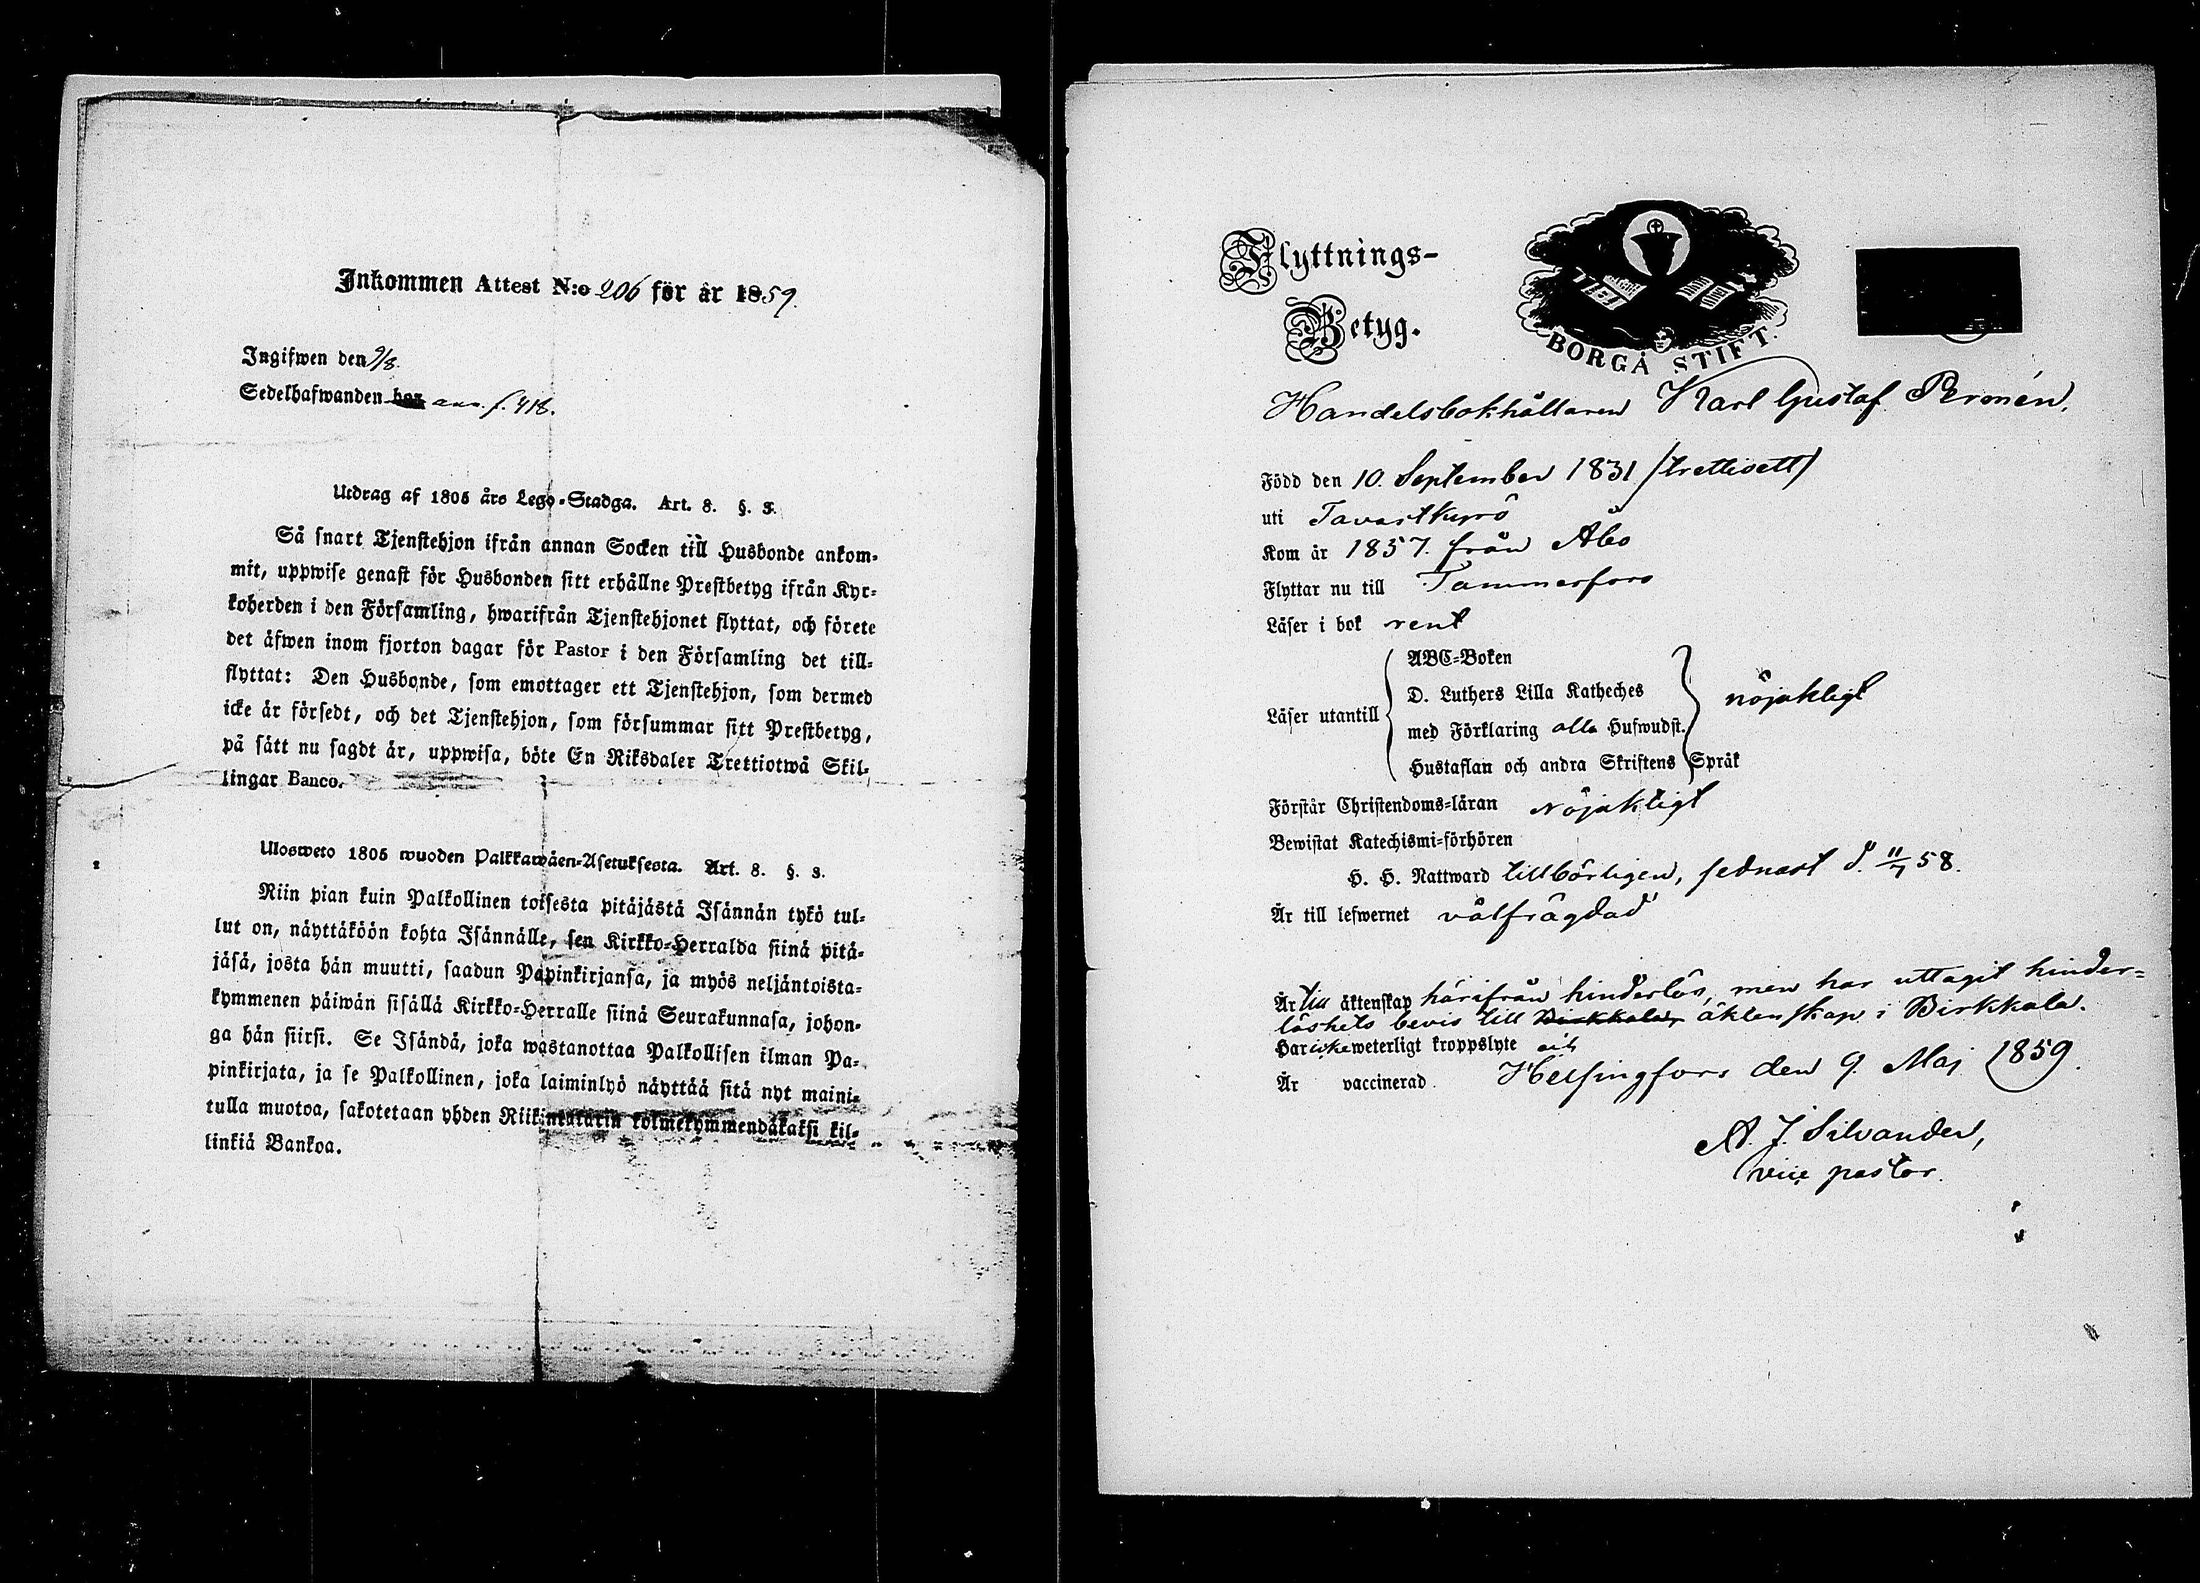 Inkommen Attest N:o 206 för år 1859.
Ingifwen den 9/8.
Sedelhafwanden har ann. f. 418.
Utdrag af 1805 års Lego-Stadga. Art. 8. §. 3.
Så snart Tjenstehjon ifrån annan Socken till Husbonde ankom-
mit, uppwise genast för Husbonden sitt erhållne Prestbetyg ifrån Kyr-
koherden i den Församling, hwarifrån Tjenstehjonet flyttat, och förete
det äfwen inom fjorton dagar för Pastor i den Församling det till-
flyttat: Den Husbonde, som emottager ett Tjenstehjon, som dermed
icke är försedt, och det Tjenstehjon, som försummar sitt Prestbetyg,
på sätt nu sagdt är, uppwisa, böte En Riksdaler Trettiotwå Skil-
lingar Banco.
Ulosweto 1805 wuoden Palkkawäen-Asetuksesta. Art. 8. §. 3.
Niin pian kuin Palkollinen toisesta pitäjästä Isännän tykö tul-
lut on, näyttäköön kohta Isännälle, sen Kirkko-Herralda siinä pitä-
jäsä, josta hän muutti, saadun Papinkirjansa, ja myös neljäntoista-
kymmenen päiwän sisällä Kirkko-Herralle siinä Seurakunnasa, johon-
ga hän siirsi. Se Isändä, joka wastanottaa Palkollisen ilman Pa-
pinkirjata, ja se Palkollinen, joka laiminlyö näyttää sitä nyt maini-
tulla muotoa, sakotetaan yhden Riikintalarin kolmekymmendäkaksi kil-
linkiä Bankoa.
Flyttnings-
Betyg.
BORGÅ STIFT.
Handelsbokhållaren Karl Gustaf Permén.
Född den 10. September 1831 /trettioett/
uti Tavastkyrö
Kom år 1857. från Åbo
Flyttar nu till Tammerfors
Läser i bok rent
Läser utantill
ABC-Boken
D. Luthers Lilla Katheches
med Förklaring alla Hufwudst.
Hustaflan och andra Skriftens Språk
nöjaktligt
Förstår Christendoms-läran nöjaktligt
Bewistat Katechismi-förhören
H. H. Nattward tillbörligen, sednast d. 11/7 58.
Är till lefwernet välfrägdad
Är till äktenskap härifrån hinderlös, men har uttagit hinder-
löshets bevis till Birkkala, äktenskap i Birkkala.
Har icke weterligt kroppslyte
Är vaccinerad Helsingfors den 9. Maj 1859.
A. J. Silvander,
vice pastor.